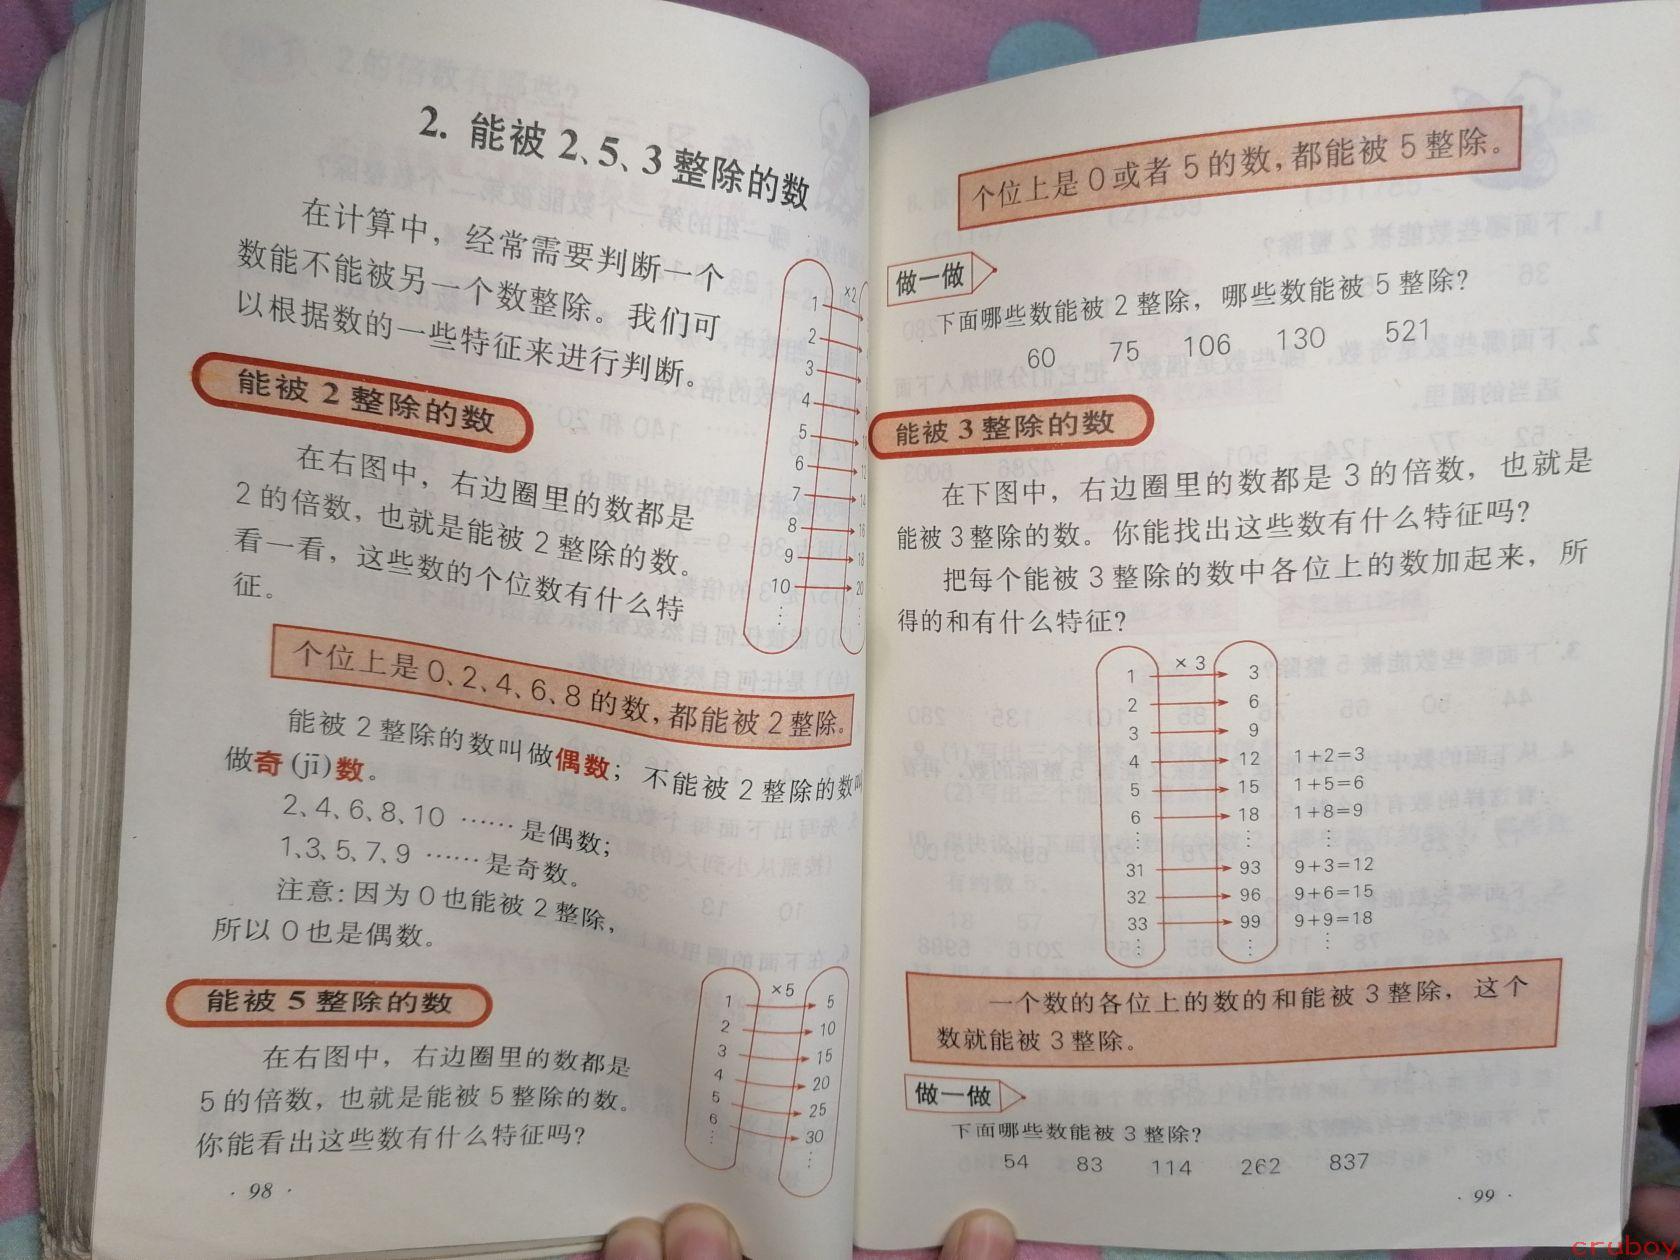 2. 能被 2、5、3 整除的数
在计算中，经常需要判断一个
数能不能被另一个数整除。我们可
以根据数的一些特征来进行判断。
能被 2 整除的数
在右图中，右边圈里的数都是
2 的倍数，也就是能被 2 整除的数。
看一看，这些数的个位数有什么特
征。
×2
1
2
3
4
5
6
7 14
8 16
9 18
10 20
⋮ ⋮
个位上是 0、2、4、6、8 的数，都能被 2 整除。
能被 2 整除的数叫做偶数；不能被 2 整除的数叫
做奇(jī)数。
2、4、6、8、10 ……是偶数；
1、3、5、7、9 ……是奇数。
注意：因为 0 也能被 2 整除，
所以 0 也是偶数。
能被 5 整除的数
在右图中，右边圈里的数都是
5 的倍数，也就是能被 5 整除的数。
你能看出这些数有什么特征吗？
×5
1 5
2 10
3 15
4 20
5 25
6 30
⋮ ⋮
· 98 ·
个位上是 0 或者 5 的数，都能被 5 整除。
做一做
下面哪些数能被 2 整除，哪些数能被 5 整除？
60 75 106 130 521
能被 3 整除的数
在下图中，右边圈里的数都是 3 的倍数，也就是
能被 3 整除的数。你能找出这些数有什么特征吗？
把每个能被 3 整除的数中各位上的数加起来，所
得的和有什么特征？
× 3
1 3
2 6
3 9
4 12 1+2=3
5 15 1+5=6
6 18 1+8=9
⋮ ⋮ ⋮
31 93 9+3=12
32 96 9+6=15
33 99 9+9=18
⋮ ⋮ ⋮
一个数的各位上的数的和能被 3 整除，这个
数就能被 3 整除。
做一做
下面哪些数能被 3 整除？
54 83 114 262 837
· 99 ·
cruboy